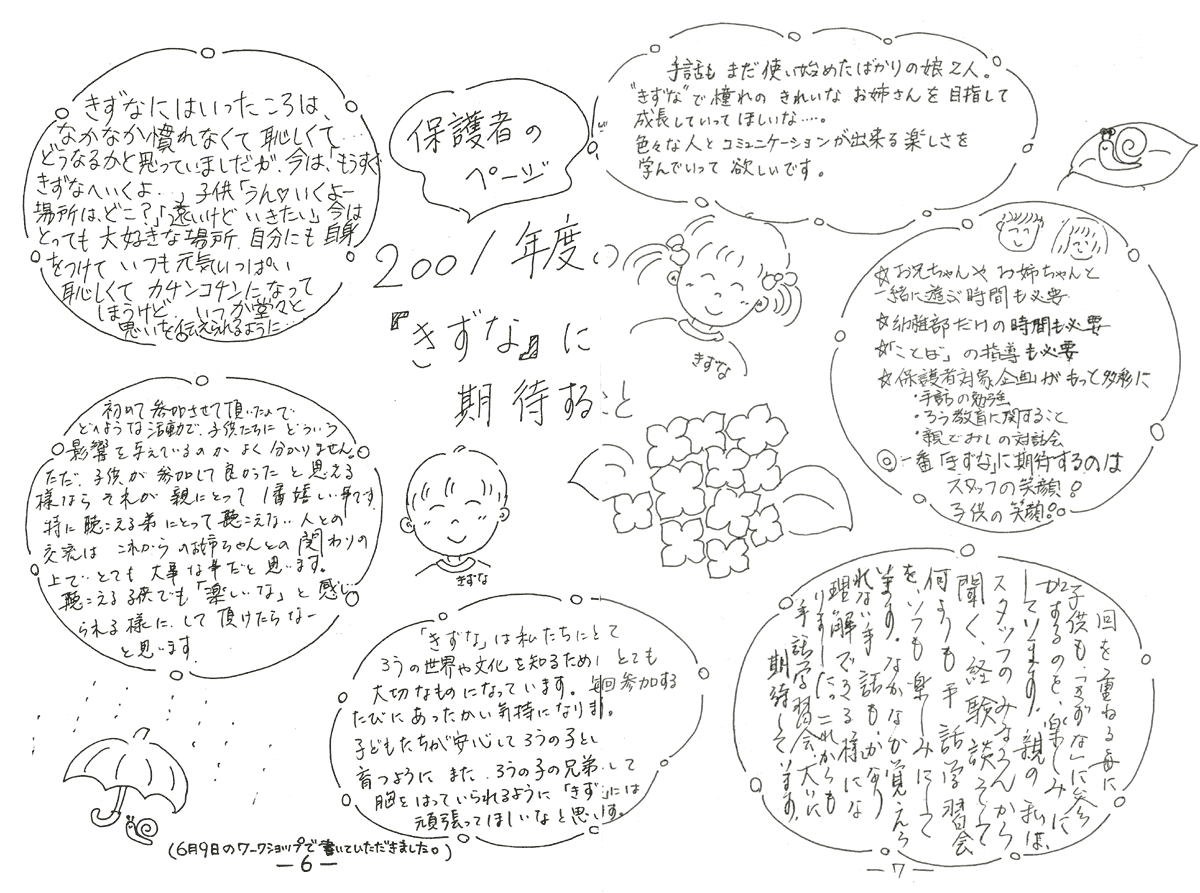 保護者の
ページ
2001年度の
『きずな』に
期待すること
きずなにはいったころは、
なかなか慣れなくて恥しくて…
どうなるかと思っていましたが、今は、「もうすぐ
きずなへいくよ…」子供「うん♡いくよー
場所は、どこ?」「遠いけどいきたい」今は
とっても大好きな場所。自分にも自身
をつけていつも元気いっぱい
恥しくてカチンコチンになって
しまうけど…いつか堂々と
思いを伝えられるように…
初めて参加させて頂いたので
どのような活動で、子供たちにどういう
影響を与えているのかよく分かりません。
ただ、子供が参加して良かったと思える
様ならそれが親にとって1番嬉しい事です
特に聴こえる弟にとって聴こえない人との
交流はこれからのお姉ちゃんとの関わりの
上で…とても大事な事だと思います。
聴こえる子供でも「楽しいな」と感じ
られる様に、して頂けたらなー
と思います。
きずな
「きずな」は私たちにとて
ろうの世界や文化を知るため とても
大切なものになっています。毎回参加する
たびにあったかい気持になりま。
子どもたちが安心してろうの子とし
育つようにまた、ろうの子の兄弟 して
胸をはっていられるように「きず」には
頑張ってほしいなと思い す。
(6月9日のワークショップで書いていただきました。)
—6—
手話もまだ使い始めたばかりの娘2人。
"きずな"で憧れのきれいなお姉さんを目指して
成長していってほしいな……。
色々な人とコミュニケーションが出来る楽しさを
学んでいって欲しいです。
きずな
☆お兄ちゃんやお姉ちゃんと
一緒に遊ぶ時間も必要
☆幼稚部だけの時間も必要
☆「ことば」の指導も必要
☆保護者対象企画がもっと多彩に
・手話の勉強
・ろう教育に関すること
・親どおしの対話会
◎一番「きずな」に期待するのは
スタッフの笑顔!
子供の笑顔!
回を重ねる毎に
子供も、「きずな」に参
加するのを、楽しみに
しています。親の私は、
スタッフのみなさんから
聞く、経験談そして
何よりも手話学習会
を、いつも楽しみにして
います。なかなか覚えら
れない手話も、かなり
理解できる様にな
りました。これからも
手話学習会、大いに
期待しています。
—7—